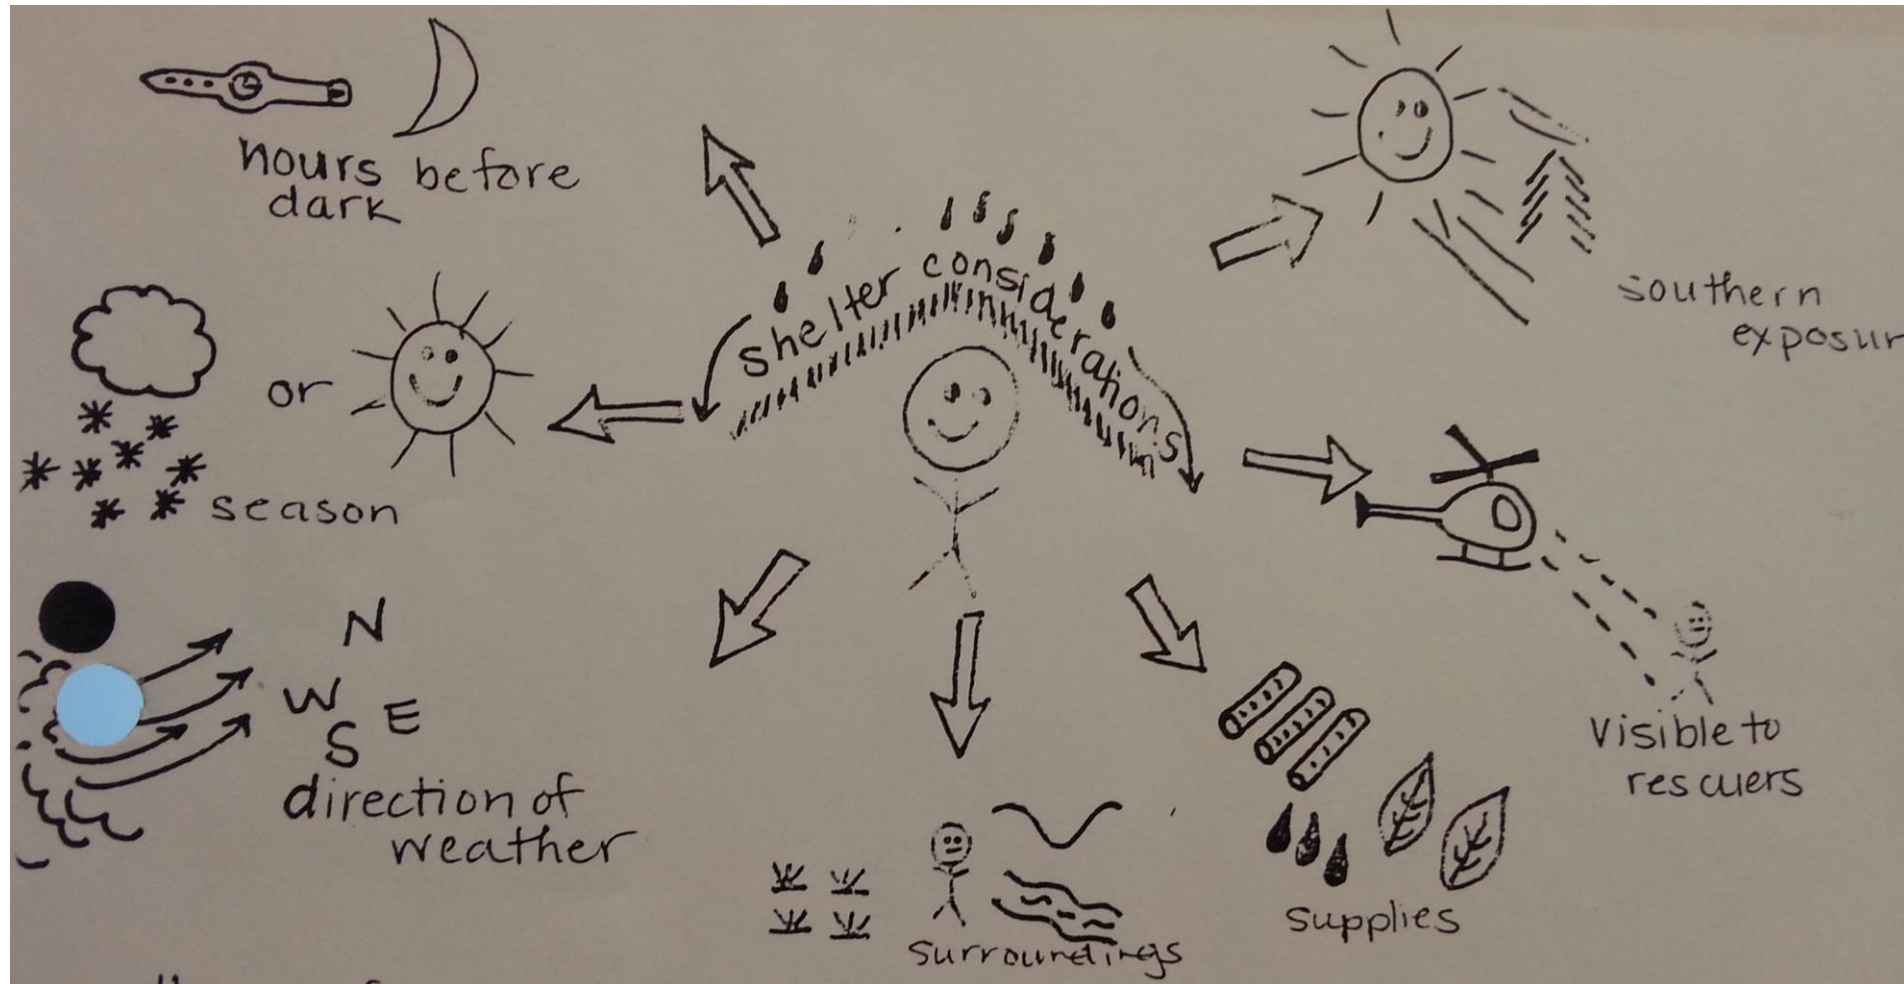 hours before
dark
shelter considerations
southern
exposur
or
season
N
W
E
S
direction of
weather
visible to
rescuers
supplies
surroundings